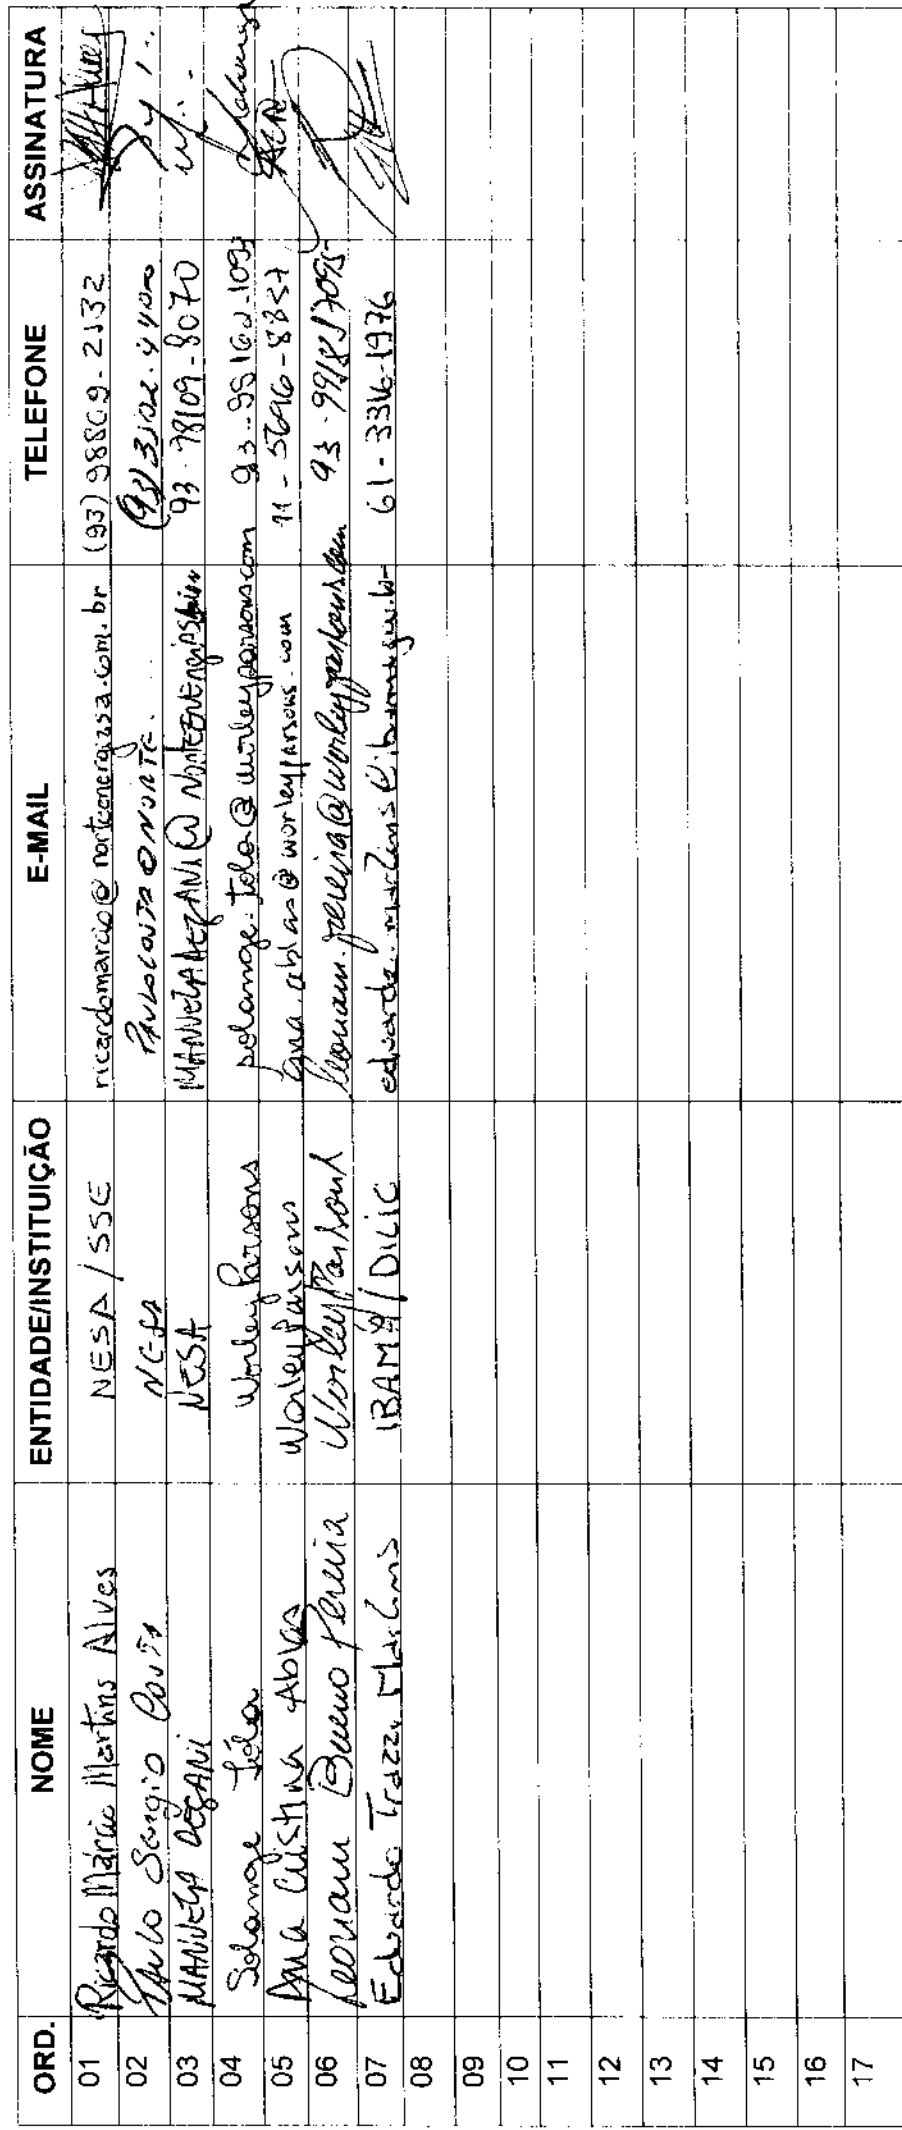 ORD. NOME ENTIDADE/INSTITUIÇÃO E-MAIL TELEFONE ASSINATURA
01 Ricardo Márcio Martins Alves NESA / SSE ricardomarcio@norteenergiasa.com.br (93) 98809-2132
02 Paulo Sergio Costa NESA PAULOCOSTA@NORTE...
03 MANUELA DEGANI NESA 93-98109-8070
04 Solange Tola WorleyParsons solange.tola@worleyparsons.com
05 Ana Cristina Ablas WorleyParsons ana.ablas@worleyparsons.com 11-5696-8857
06 Leonam Bueno Pereira WorleyParsons leonam.pereira@worleyparsons.com
07 Eduardo Trazzi Martins IBAMA/DILIC 61-3316-1976
08
09
10
11
12
13
14
15
16
17